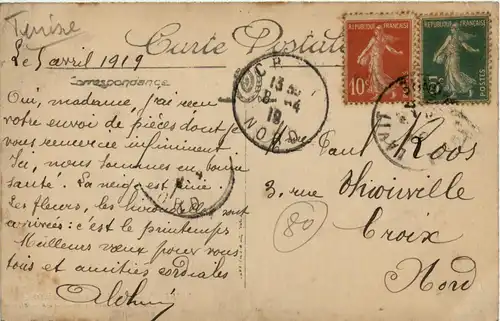 Tunise
Carte Postale
Le 5 avril 1919
Correspondance
Oui, madame, j'ai reçu
votre envoi de pièces dont je
vous remercie infiniment
Ici, nous sommes en bonne
santé. La neige est finie.
Les fleurs, les sont
arrivées: c'est le printemps
Meilleurs vœux pour vous
tous et amitiés cordiales
REPUBLIQUE FRANÇAISE
10c
REPUBLIQUE FRANÇAISE
POSTES
13
19
NORD
Paul Roos
3, rue Thionville
Croix
Nord
80